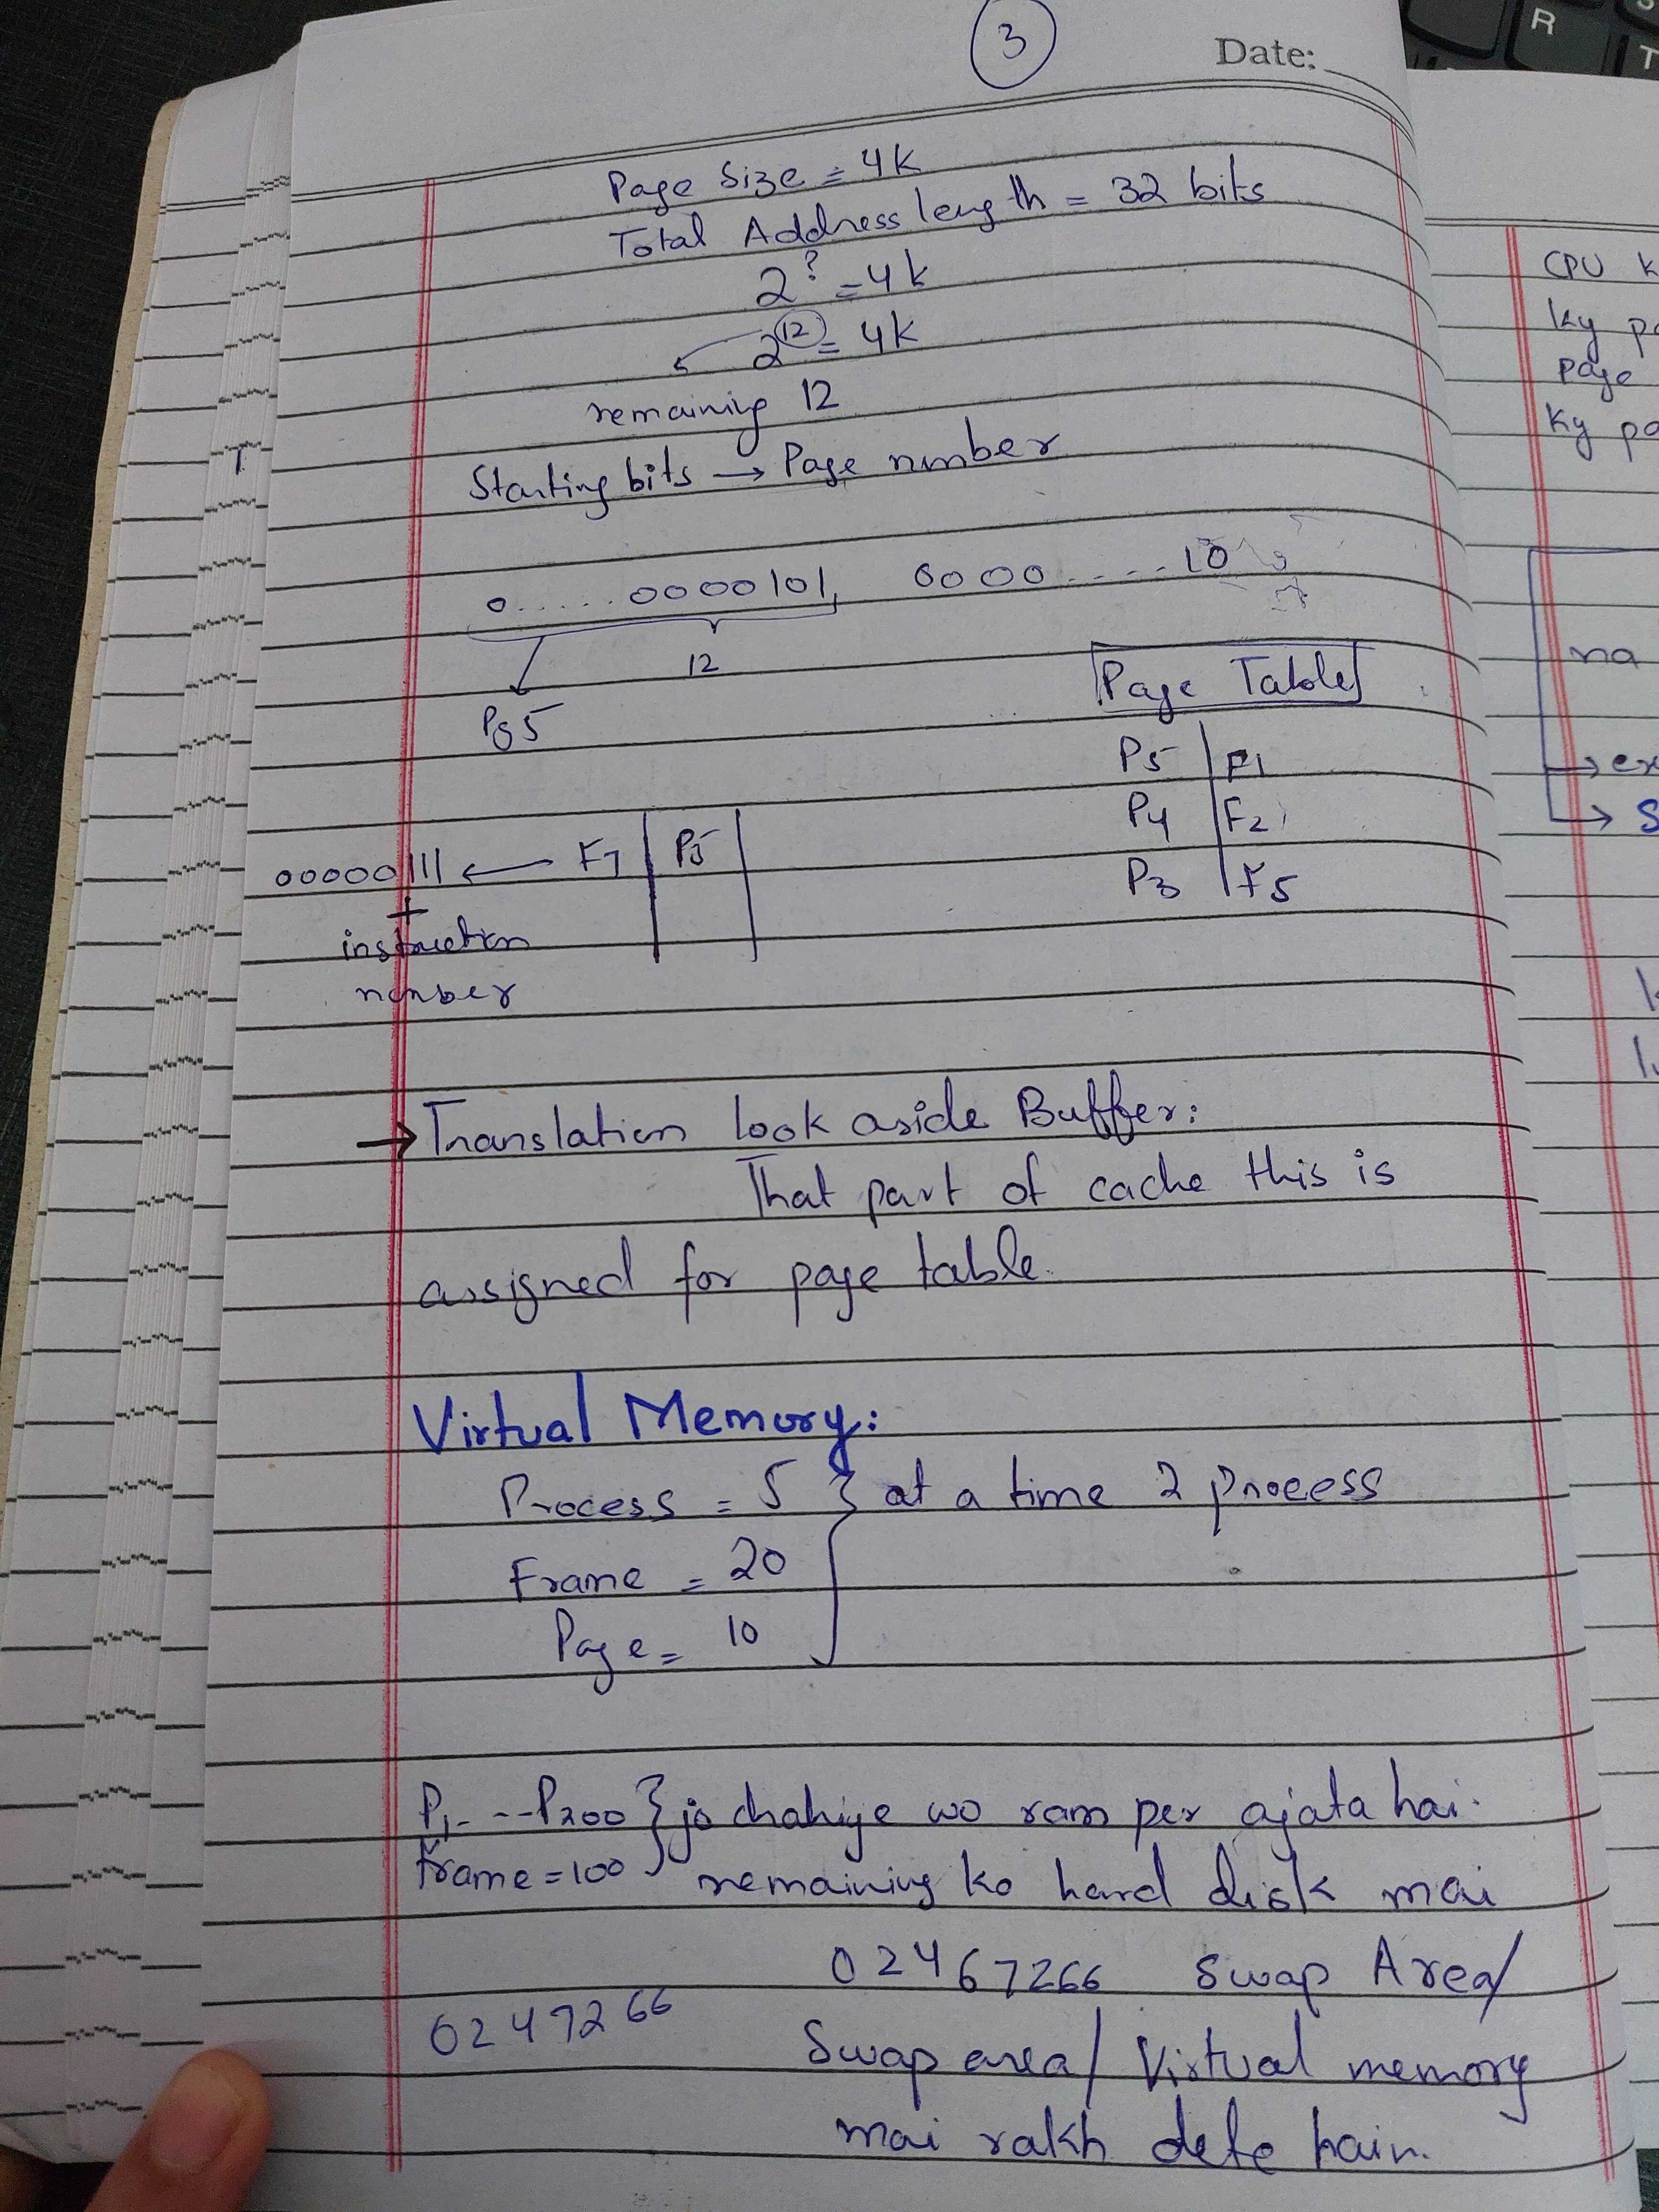 3
Date:
Page Size = 4K
Total Address length = 32 bits
2^? = 4k
2^12 = 4K
remaining 12
Starting bits → Page number
0......0000101, 0000.....10
12
Pg 5
Page Table
P5 | F1
P4 | F2
P3 | F5
00000111 ← F7 | P5
+
instruction
number
→ Translation look aside Buffer:
That part of cache this is
assigned for page table.
Virtual Memory:
Process = 5 } at a time 2 process
Frame = 20
Page = 10
P1- --P200 } jo chahiye wo ram per ajata hai.
Frame = 100 remaining ko hard disk mai
02467266 Swap Area/
0247266 Swap area/ Virtual memory
mai rakh dete hain.
CPU K
ky pa
Page
ky pa
na
→ ex
→ S
R
T